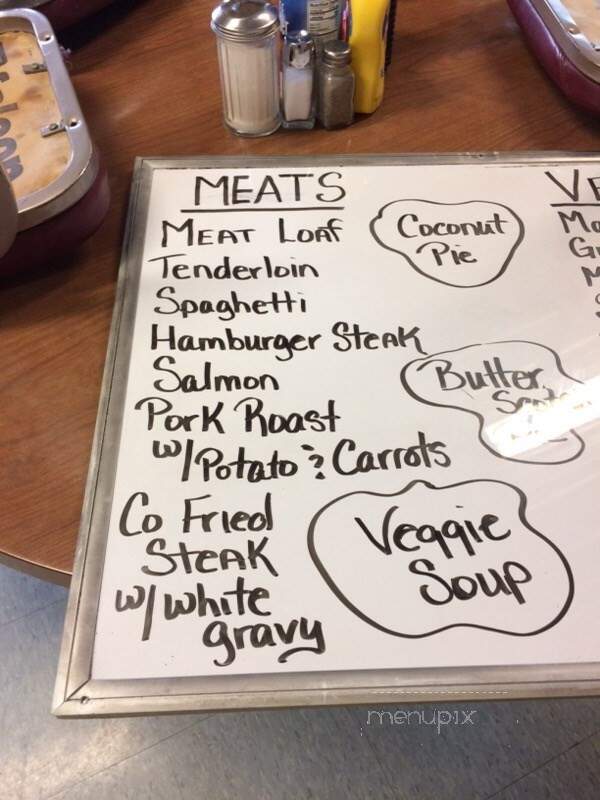 MEATS
MEAT LOAF
Tenderloin
Spaghetti
Hamburger STEAK
Salmon
Pork Roast
w/ Potato & Carrots
Co Fried
STEAK
w/ white
gravy
Coconut
Pie
Butter
Veggie
Soup
menupix